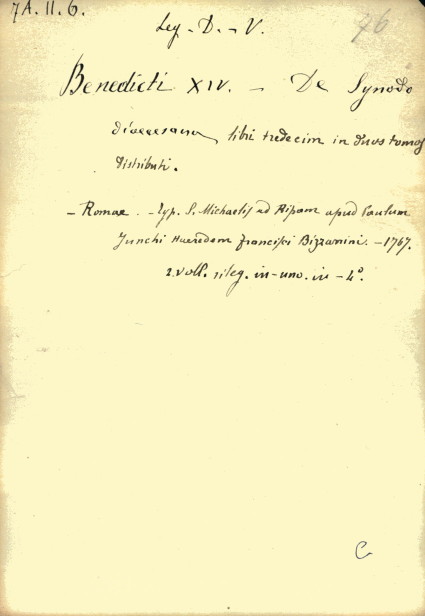 7A.II.6.
76
Leg. D. V.
Benedicti XIV. – De Synodo
dioecesana, libri tredecim in duos tomos
distributi.
– Romae. – Typ. S. Michaelis ad Ripam apud Paulum
Junchi Haeredem Francisci Bizzarrini. – 1767.
2. voll. rileg. in-uno. in – 4°.
C